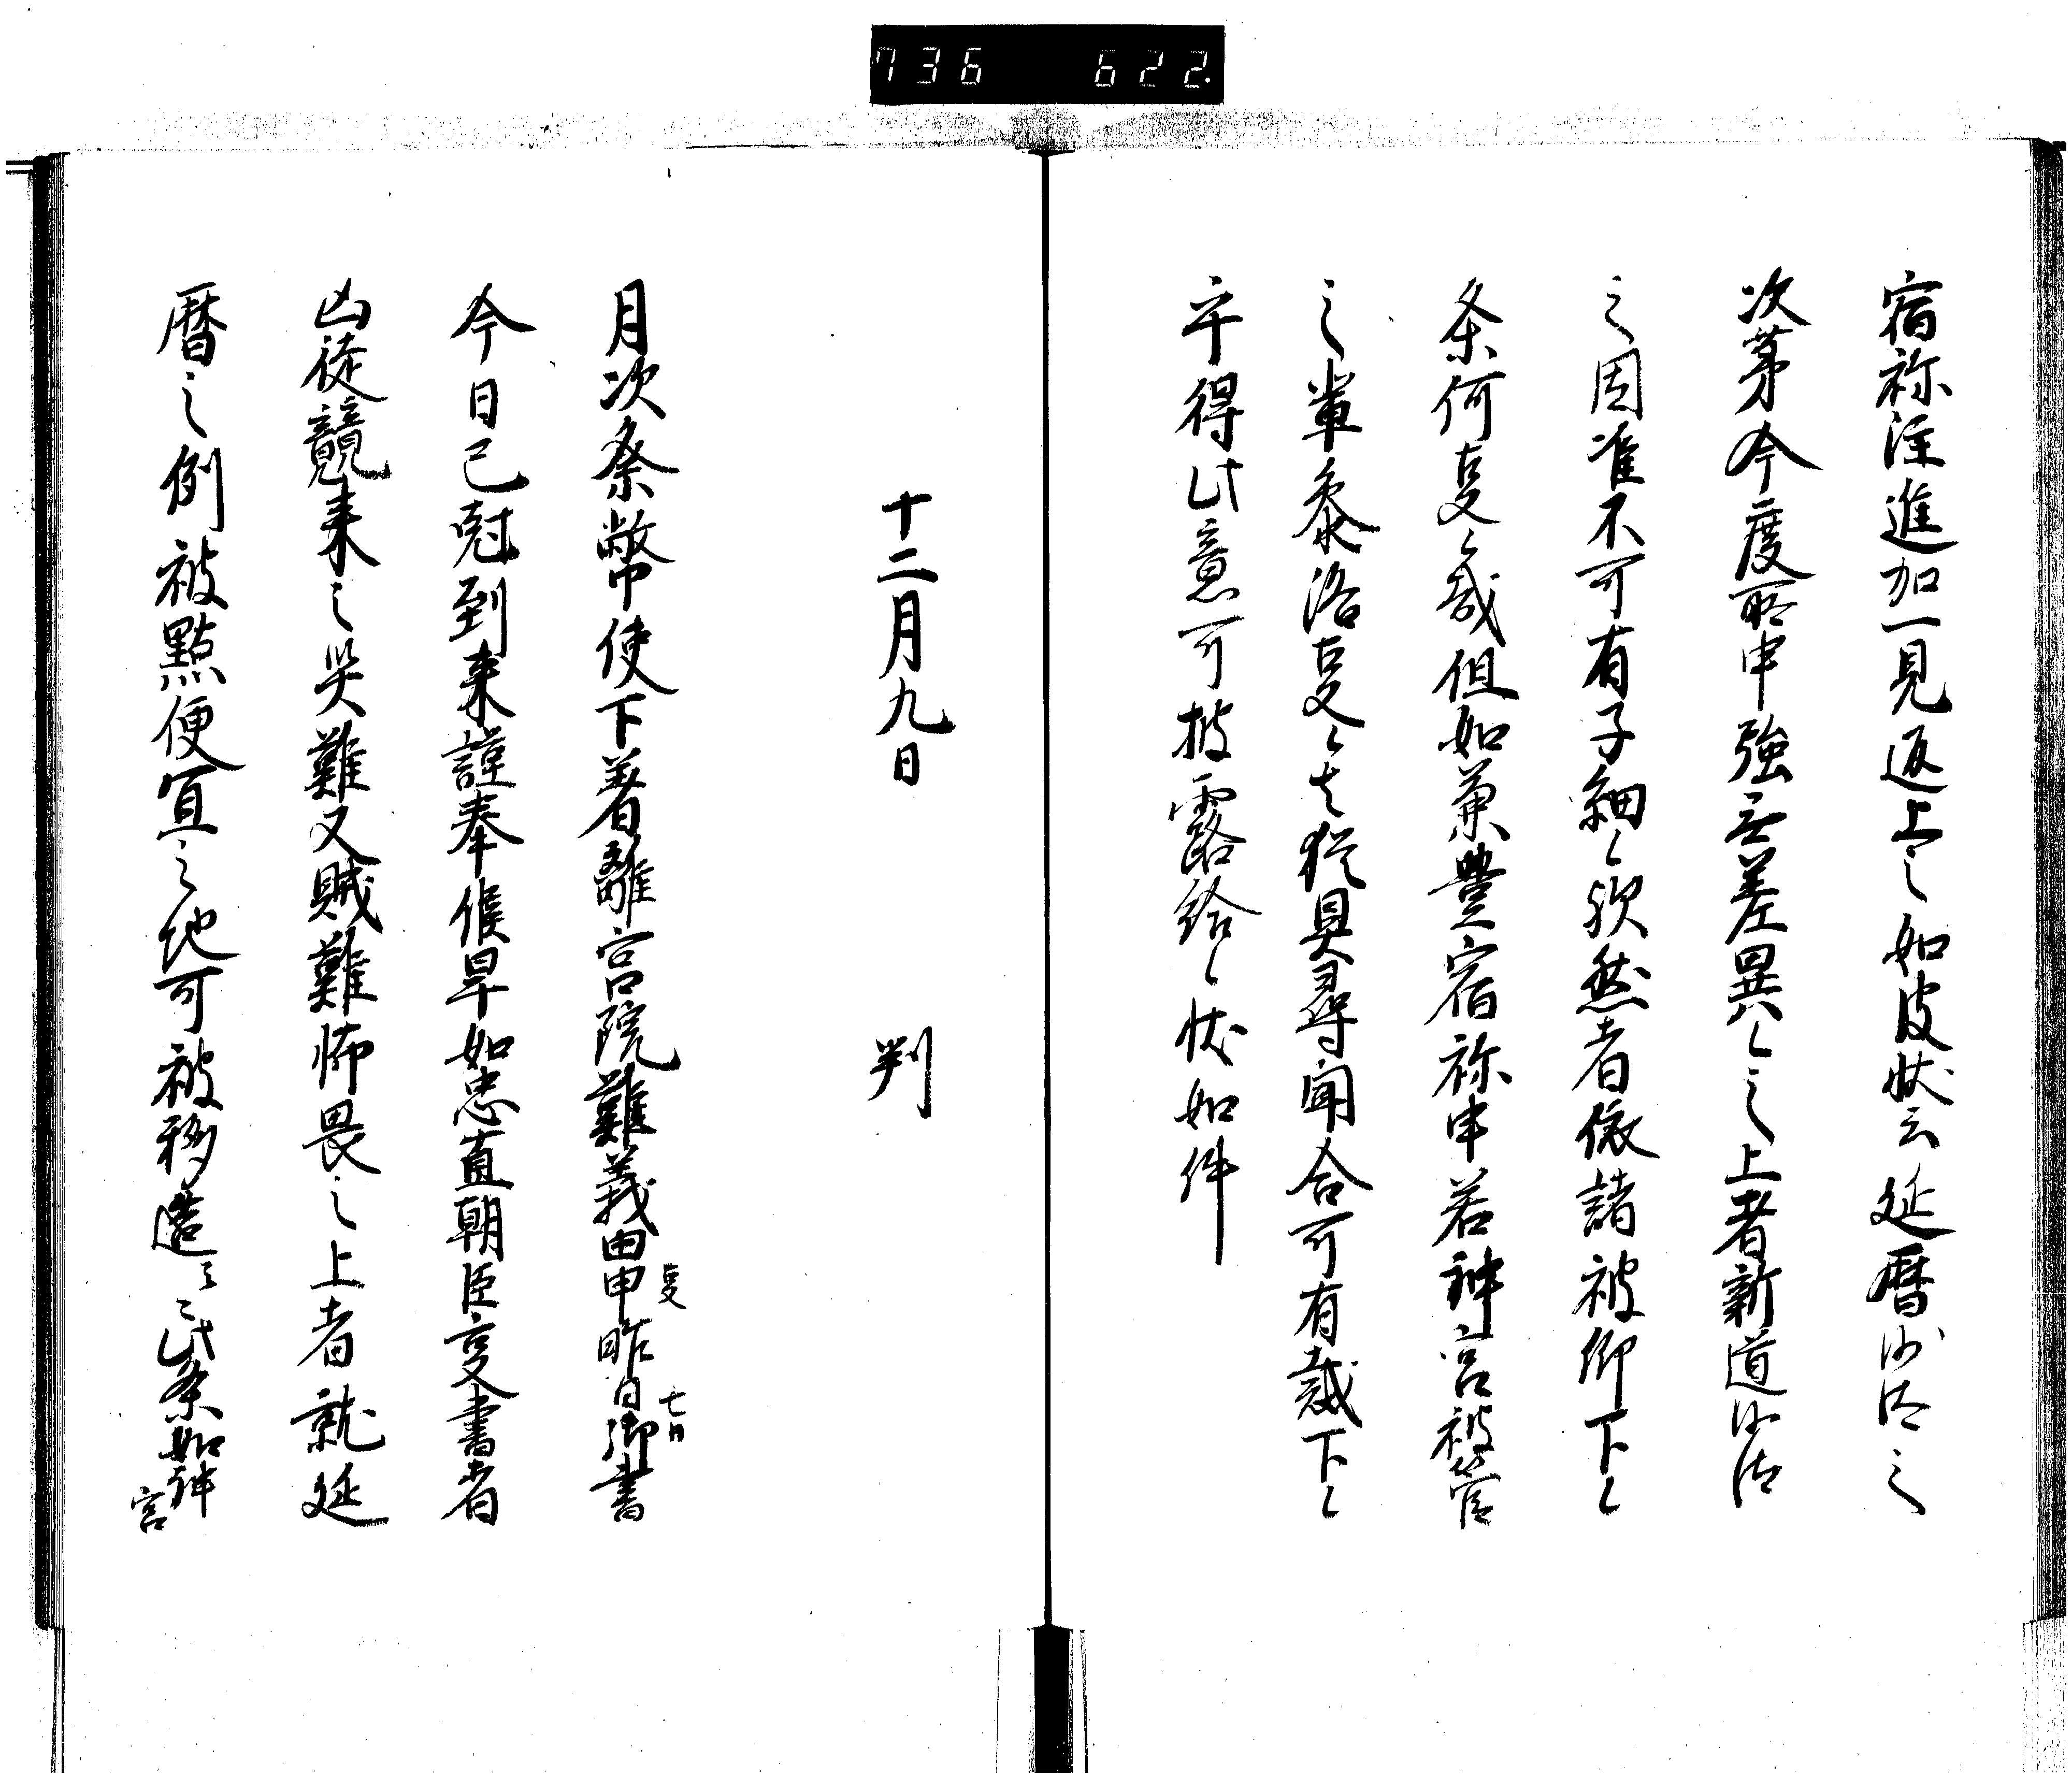 736 622
宿祢注進加一見返上之如彼状云延暦沙汰之
次第今度所申強無差異々之上者新道沙汰
之因准不可有子細々歟然者依諸被仰下々
条何事々哉但如兼豊宿祢申若神宮被管
之輩参洛事々者猶具尋聞合可有裁下々
乎得此意可披露給々状如件
十二月九日 判
月次祭幣使下着離宮院難義由事申昨日七日御書
今日已尅到来謹奉候畢如忠直朝臣事書者
凶徒競来之災難又賊難怖畏之上者就延
暦之例被點便宜之地可被移造之云々此条如神宮